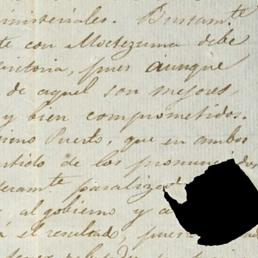 ministeriales. Bustamte
te con Moctezuma debe
ictoria, pues aunque
de aquel son mejores
y bien comprometidos.
Puerto, que en ambos
tido de los pronunciados
paralizado
, al gobierno y a
el resultado, pues